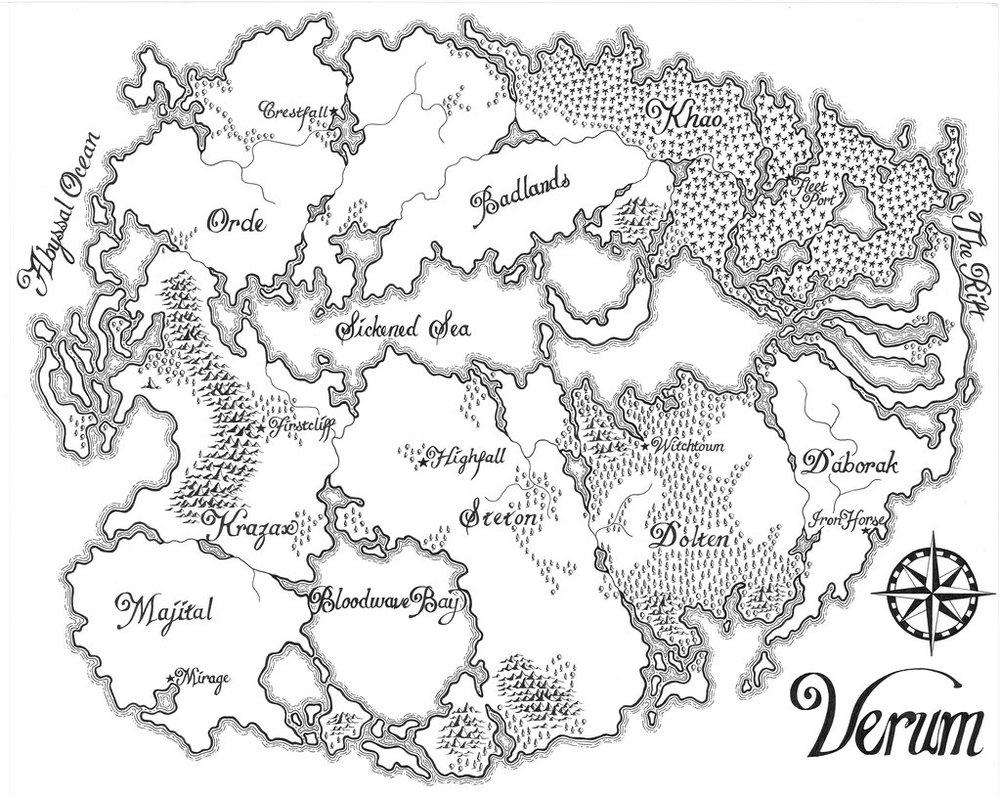 Crestfall
Khao
Abyssal Ocean
Orde
Badlands
Fleet
Port
The Rift
Sickened Sea
Firstcliff
Highfall
Witchtown
Daborak
Krazax
Steton
Dolten
Iron Horse
Majital
Bloodwave Bay
Mirage
Verum